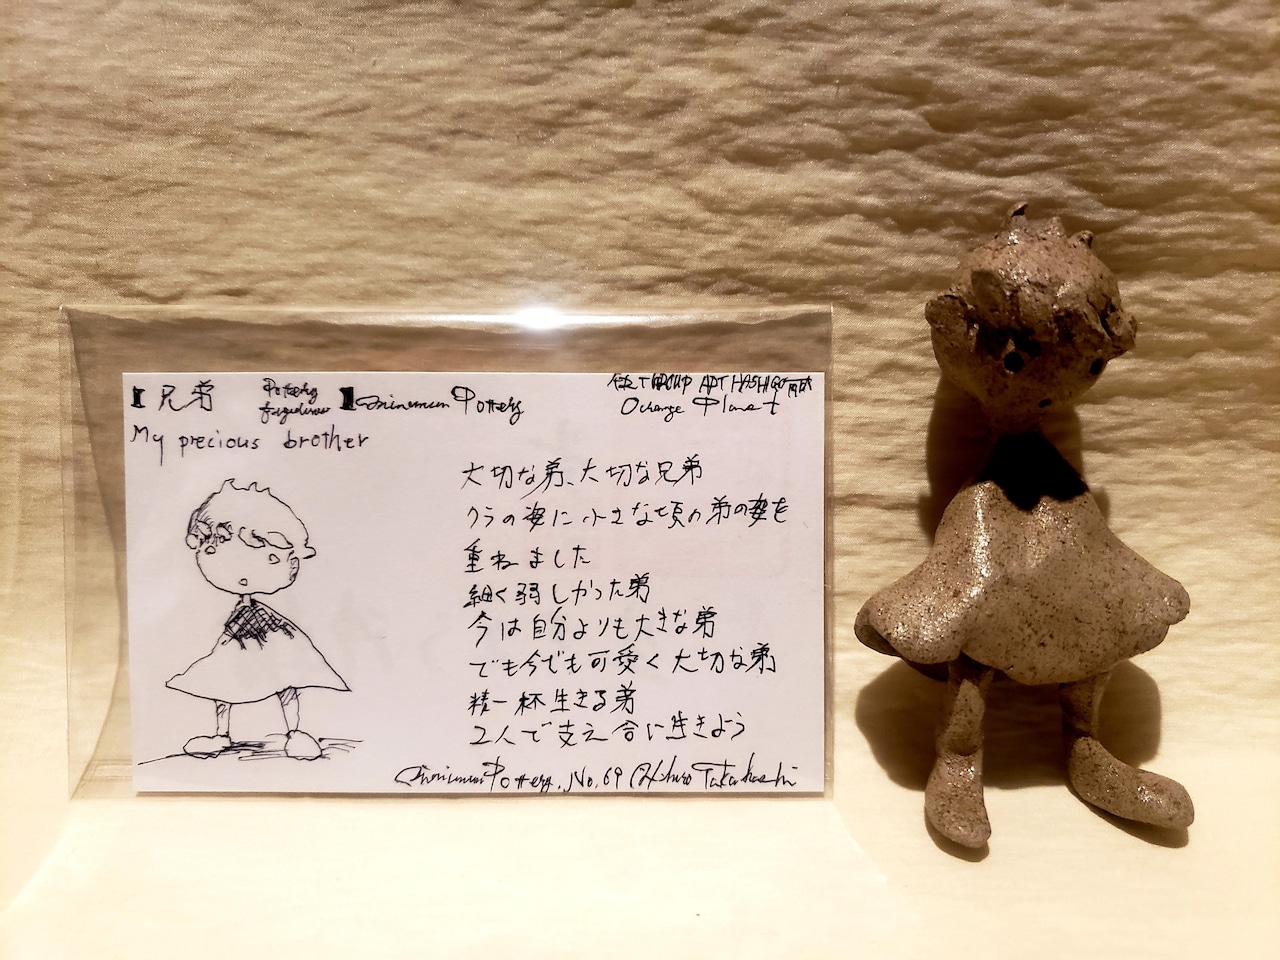 【兄弟 Pottery figurines】Minimum Pottery
Orange Planet
My precious brother
大切な弟、大切な兄弟
クラの姿に小さな頃の弟の姿を
重ねました
細く弱しかった弟
今は自分よりも大きな弟
でも今でも可愛く大切な弟
精一杯生きる弟
2人で支え合い生きよう
Minimum Pottery. No.69 Takahashi